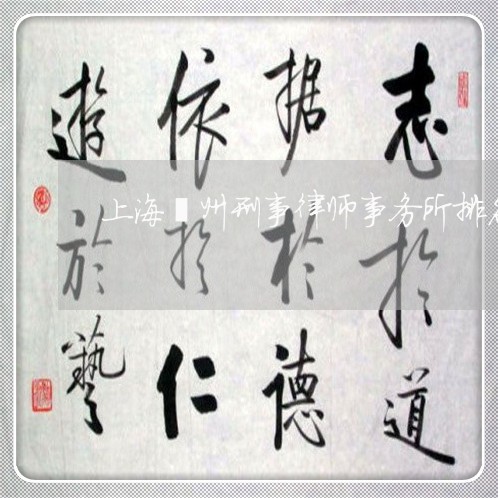 志扵道
据於德
依扵仁
遊於藝
上海█州刑事律师事务所排